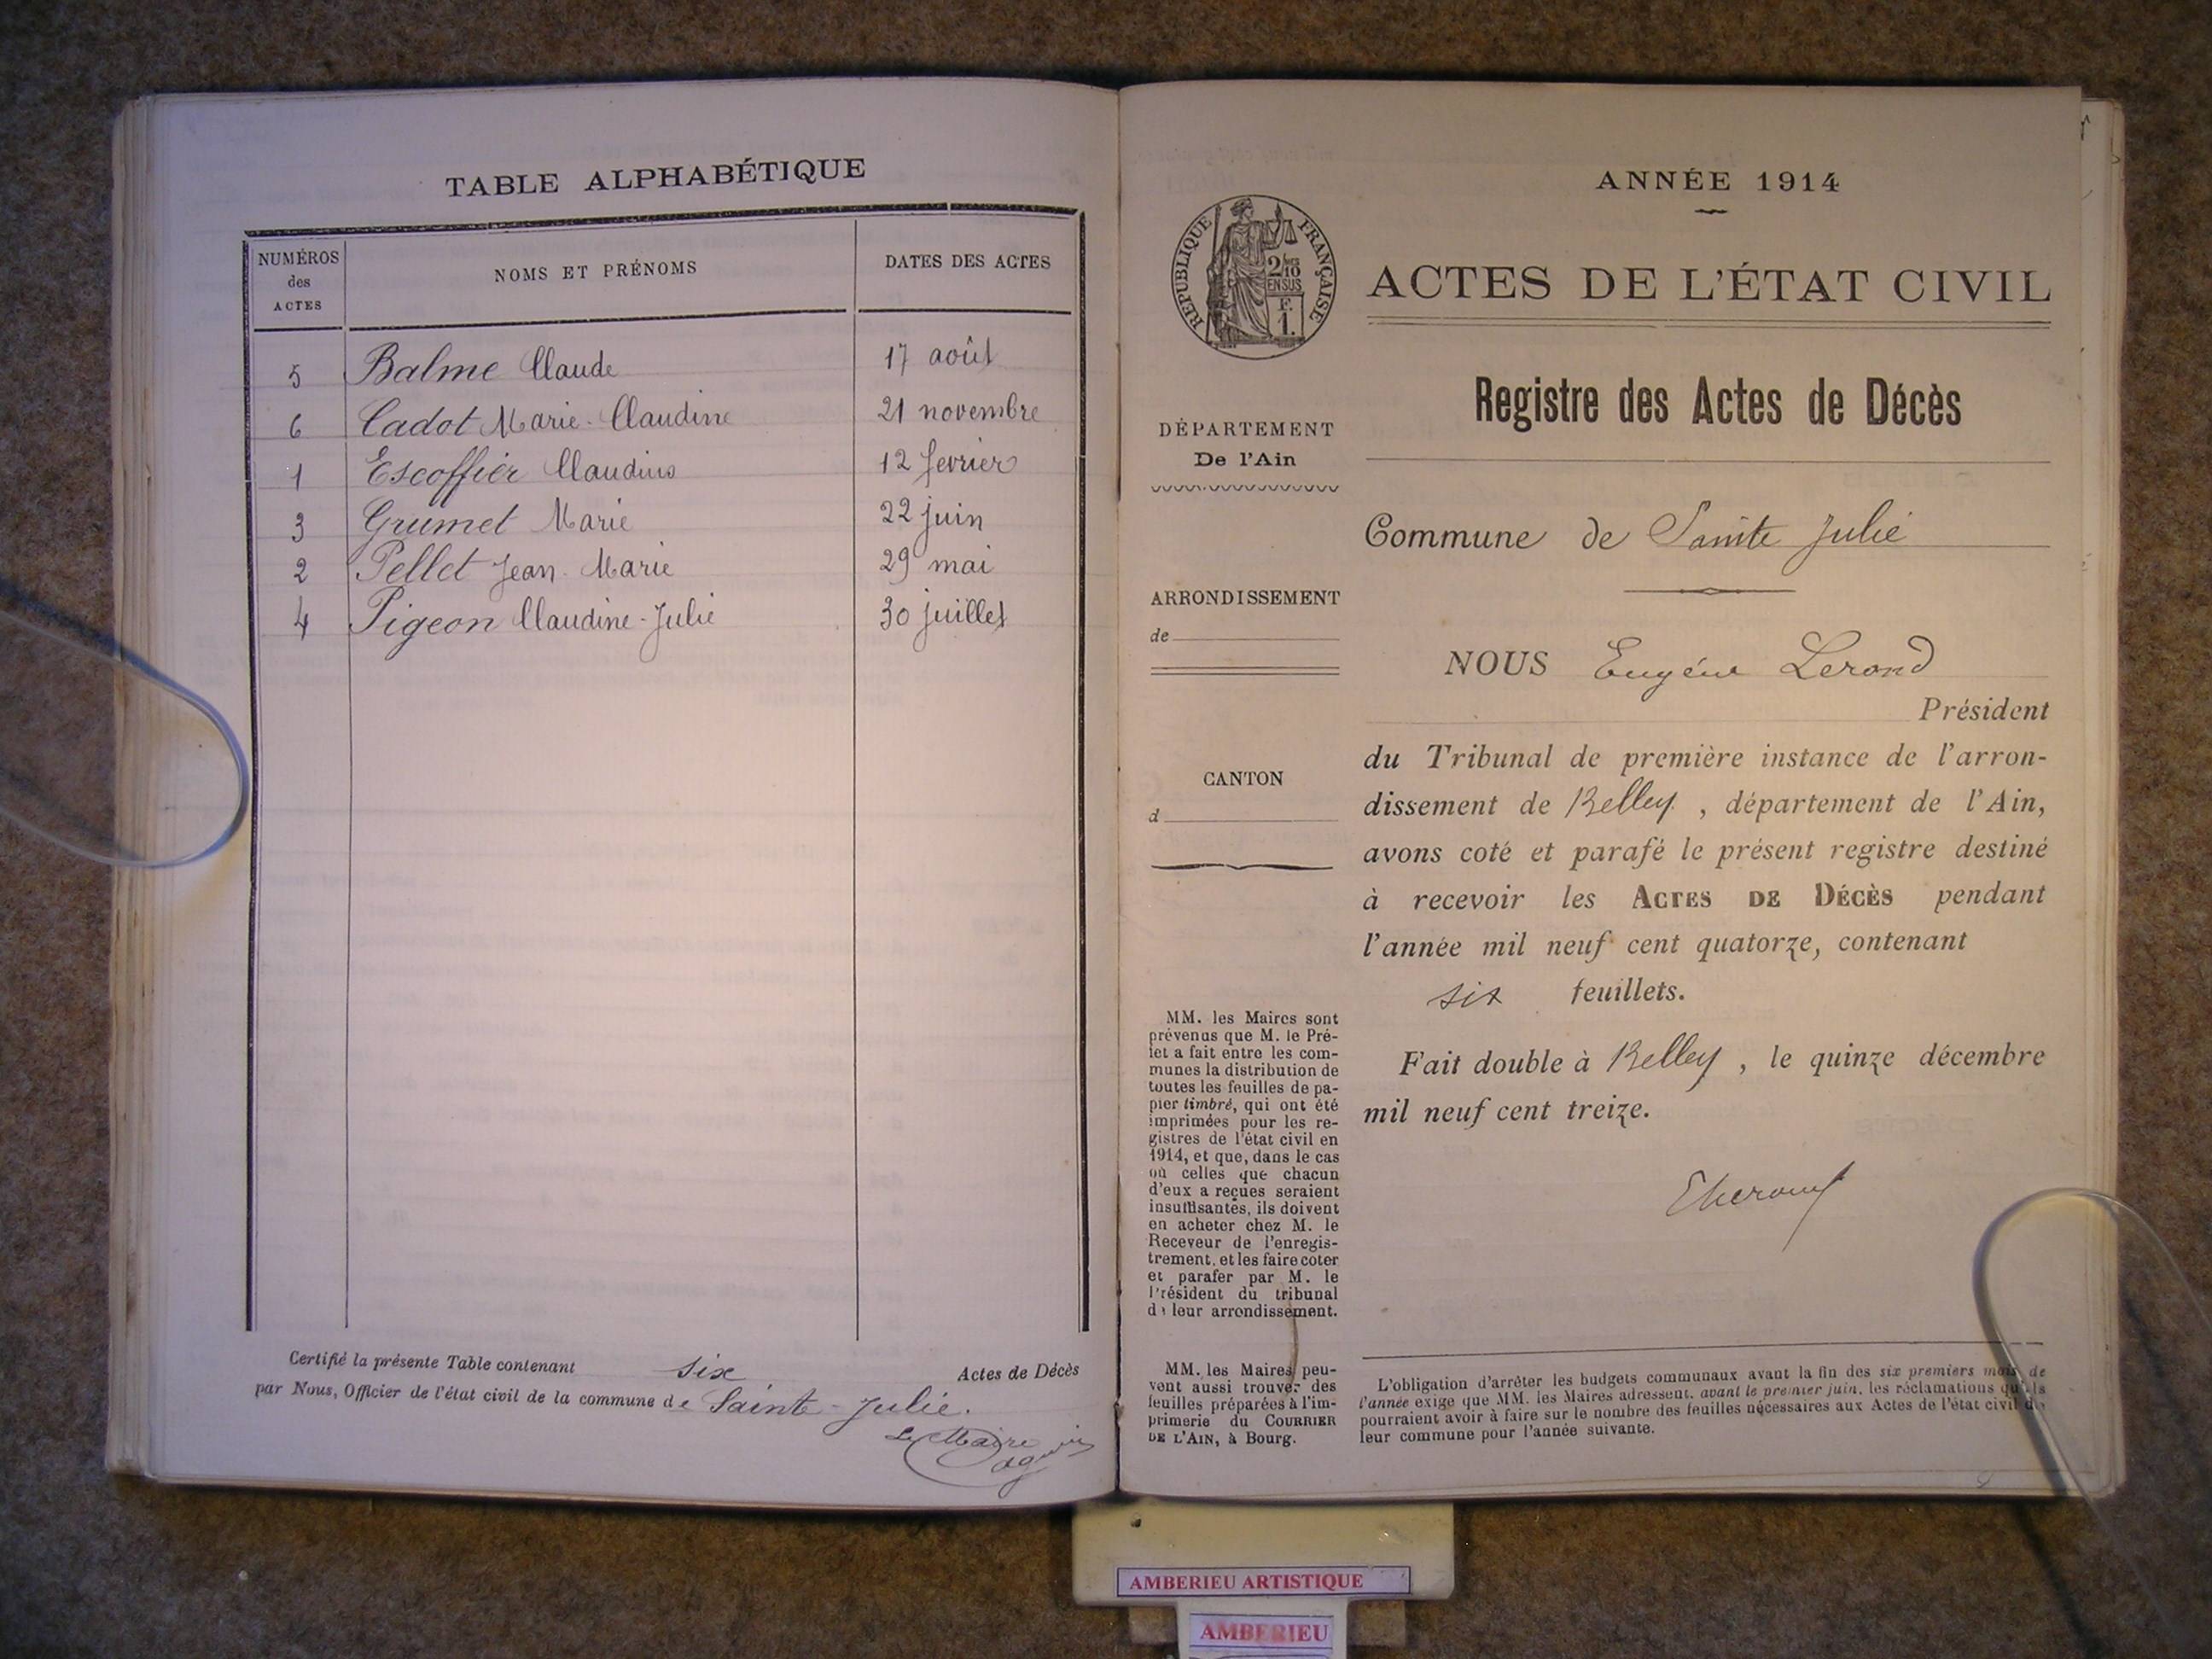 TABLE ALPHABÉTIQUE
NUMÉROS des ACTES NOMS ET PRÉNOMS DATES DES ACTES
5 Balme Claude 17 août
6 Cadot Marie-Claudine 21 novembre
1 Escoffier Claudine 12 fevrier
3 Grumet Marie 22 juin
2 Pellet Jean-Marie 29 mai
4 Pigeon Claudine-Julie 30 juillet
Certifié la présente Table contenant six Actes de Décès
par Nous, Officier de l'état civil de la commune de Sainte-Julie.
Le Maire
ANNÉE 1914
REPUBLIQUE FRANÇAISE
2/10
EN SUS
F.
1.
ACTES DE L'ÉTAT CIVIL
Registre des Actes de Décès
DÉPARTEMENT
De l'Ain
Commune de Sainte Julie
ARRONDISSEMENT
de
NOUS Eugène Lerond
Président
du Tribunal de première instance de l'arron-
dissement de Belley, département de l'Ain,
avons coté et parafé le présent registre destiné
à recevoir les ACTES DE DÉCÈS pendant
l'année mil neuf cent quatorze, contenant
six feuillets.
Fait double à Belley, le quinze décembre
mil neuf cent treize.
CANTON
d
MM. les Maires sont
prévenus que M. le Pré-
fet a fait entre les com-
munes la distribution de
toutes les feuilles de pa-
pier timbré, qui ont été
imprimées pour les re-
gistres de l'état civil en
1914, et que, dans le cas
où celles que chacun
d'eux a reçues seraient
insuffisantes, ils doivent
en acheter chez M. le
Receveur de l'enregis-
trement, et les faire coter
et parafer par M. le
Président du tribunal
de leur arrondissement.
MM. les Maires peu-
vent aussi trouver des
feuilles préparées à l'im-
primerie du COURRIER
DE L'AIN, à Bourg.
L'obligation d'arrêter les budgets communaux avant la fin des six premiers mois de
l'année exige que MM. les Maires adressent, avant le premier juin, les réclamations qu'ils
pourraient avoir à faire sur le nombre des feuilles nécessaires aux Actes de l'état civil de
leur commune pour l'année suivante.
AMBERIEU ARTISTIQUE
AMBERIEU